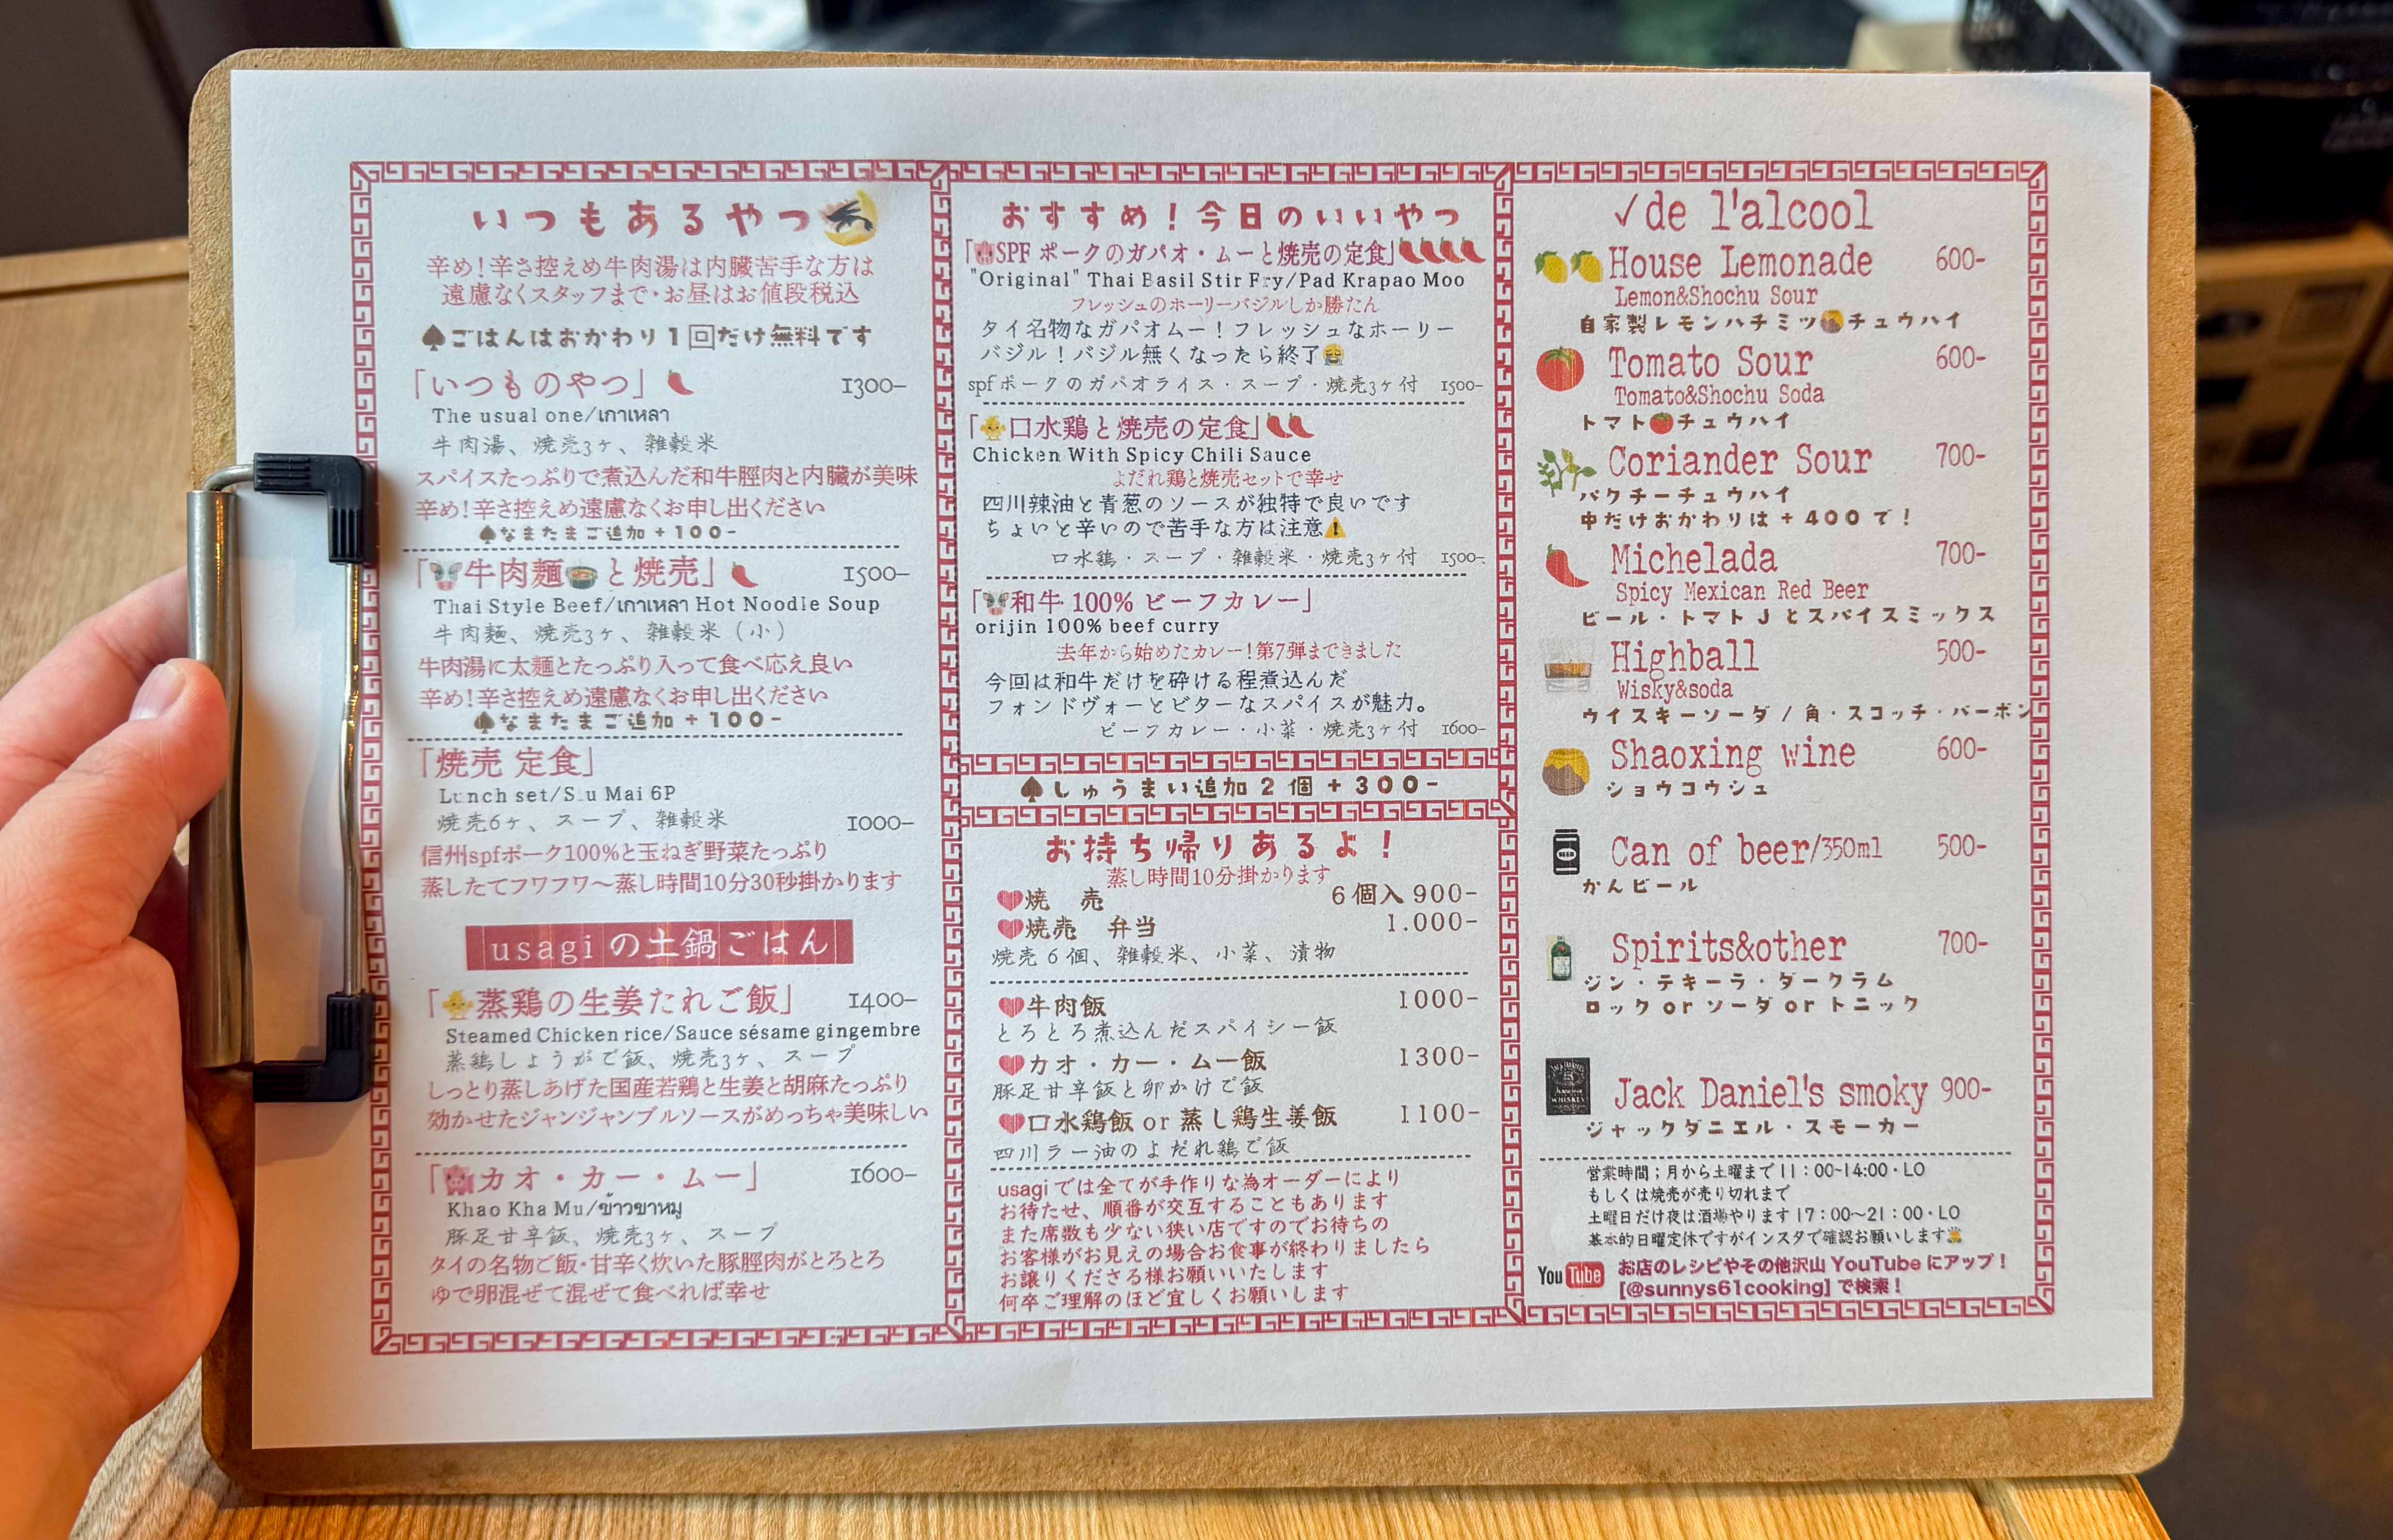 いつもあるやつ
辛め！辛さ控えめ牛肉湯は内臓苦手な方は
遠慮なくスタッフまで・お昼はお値段税込
♠ごはんはおかわり1回だけ無料です
「いつものやつ」 1300-
The usual one/เกาเหลา
牛肉湯、焼売3ヶ、雑穀米
スパイスたっぷりで煮込んだ和牛脛肉と内臓が美味
辛め！辛さ控えめ遠慮なくお申し出ください
♠なまたまご追加+100-
「牛肉麺と焼売」 1500-
Thai Style Beef/เกาเหลา Hot Noodle Soup
牛肉麺、焼売3ヶ、雑穀米（小）
牛肉湯に太麺とたっぷり入って食べ応え良い
辛め！辛さ控えめ遠慮なくお申し出ください
♠なまたまご追加+100-
「焼売 定食」
Lunch set/Siu Mai 6P
焼売6ヶ、スープ、雑穀米 1000-
信州spfポーク100%と玉ねぎ野菜たっぷり
蒸したてフワフワ〜蒸し時間10分30秒掛かります
usagiの土鍋ごはん
「蒸鶏の生姜たれご飯」 1400-
Steamed Chicken rice/Sauce sésame gingembre
蒸鶏しょうがご飯、焼売3ヶ、スープ
しっとり蒸しあげた国産若鶏と生姜と胡麻たっぷり
効かせたジャンジャンブルソースがめっちゃ美味しい
「カオ・カー・ムー」 1600-
Khao Kha Mu/ข้าวขาหมู
豚足甘辛飯、焼売3ヶ、スープ
タイの名物ご飯・甘辛く炊いた豚脛肉がとろとろ
ゆで卵混ぜて混ぜて食べれば幸せ
おすすめ！今日のいいやつ
「SPF ポークのガパオ・ムーと焼売の定食」
"Original" Thai Basil Stir Fry/Pad Krapao Moo
フレッシュのホーリーバジルしか勝たん
タイ名物なガパオムー！フレッシュなホーリー
バジル！バジル無くなったら終了
spfポークのガパオライス・スープ・焼売3ヶ付 1500-
「口水鶏と焼売の定食」
Chicken With Spicy Chili Sauce
よだれ鶏と焼売セットで幸せ
四川辣油と青葱のソースが独特で良いです
ちょいと辛いので苦手な方は注意⚠
口水鶏・スープ・雑穀米・焼売3ヶ付 1500-
「和牛 100% ビーフカレー」
orijin 100% beef curry
去年から始めたカレー！第7弾まできました
今回は和牛だけを砕ける程煮込んだ
フォンドヴォーとビターなスパイスが魅力。
ビーフカレー・小菜・焼売3ヶ付 1600-
♠しゅうまい追加2個+300-
お持ち帰りあるよ！
蒸し時間10分掛かります
焼 売 6個入 900-
焼売 弁当 1.000-
焼売6個、雑穀米、小菜、漬物
牛肉飯 1000-
とろとろ煮込んだスパイシー飯
カオ・カー・ムー飯 1300-
豚足甘辛飯と卵かけご飯
口水鶏飯 or 蒸し鶏生姜飯 1100-
四川ラー油のよだれ鶏ご飯
usagiでは全てが手作りな為オーダーにより
お待たせ、順番が交互することもあります
また席数も少ない狭い店ですのでお待ちの
お客様がお見えの場合お食事が終わりましたら
お譲りくださる様お願いいたします
何卒ご理解のほど宜しくお願いします
✓de l'alcool
House Lemonade 600-
Lemon&Shochu Sour
自家製レモンハチミツチュウハイ
Tomato Sour 600-
Tomato&Shochu Soda
トマトチュウハイ
Coriander Sour 700-
パクチーチュウハイ
中だけおかわりは+400で！
Michelada 700-
Spicy Mexican Red Beer
ビール・トマトJとスパイスミックス
Highball 500-
Wisky&soda
ウイスキーソーダ/角・スコッチ・バーボン
Shaoxing wine 600-
ショウコウシュ
Can of beer/350ml 500-
かんビール
Spirits&other 700-
ジン・テキーラ・ダークラム
ロック or ソーダ or トニック
Jack Daniel's smoky 900-
ジャックダニエル・スモーカー
営業時間；月から土曜まで11：00~14:00・LO
もしくは焼売が売り切れまで
土曜日だけ夜は酒場やります17：00〜21：00・LO
基本的日曜定休ですがインスタで確認お願いします
YouTube お店のレシピやその他沢山 YouTube にアップ！
[@sunnys61cooking] で検索！